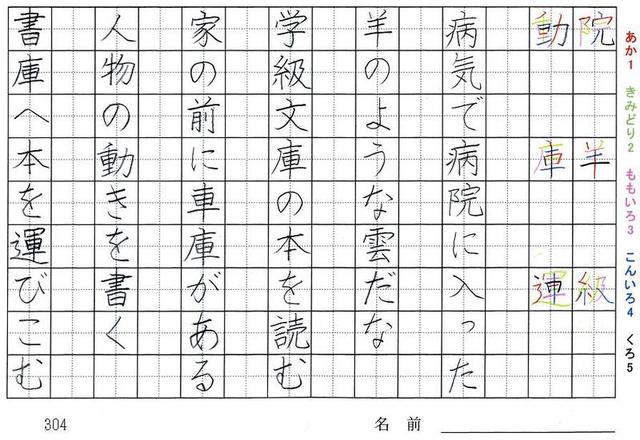 あか1 きみどり2 ももいろ3 こんいろ4 くろ5
院 羊 級
動 庫 運
病気で病院に入った
羊のような雲だな
学級文庫の本を読む
家の前に車庫がある
人物の動きを書く
書庫へ本を運びこむ
304
名前